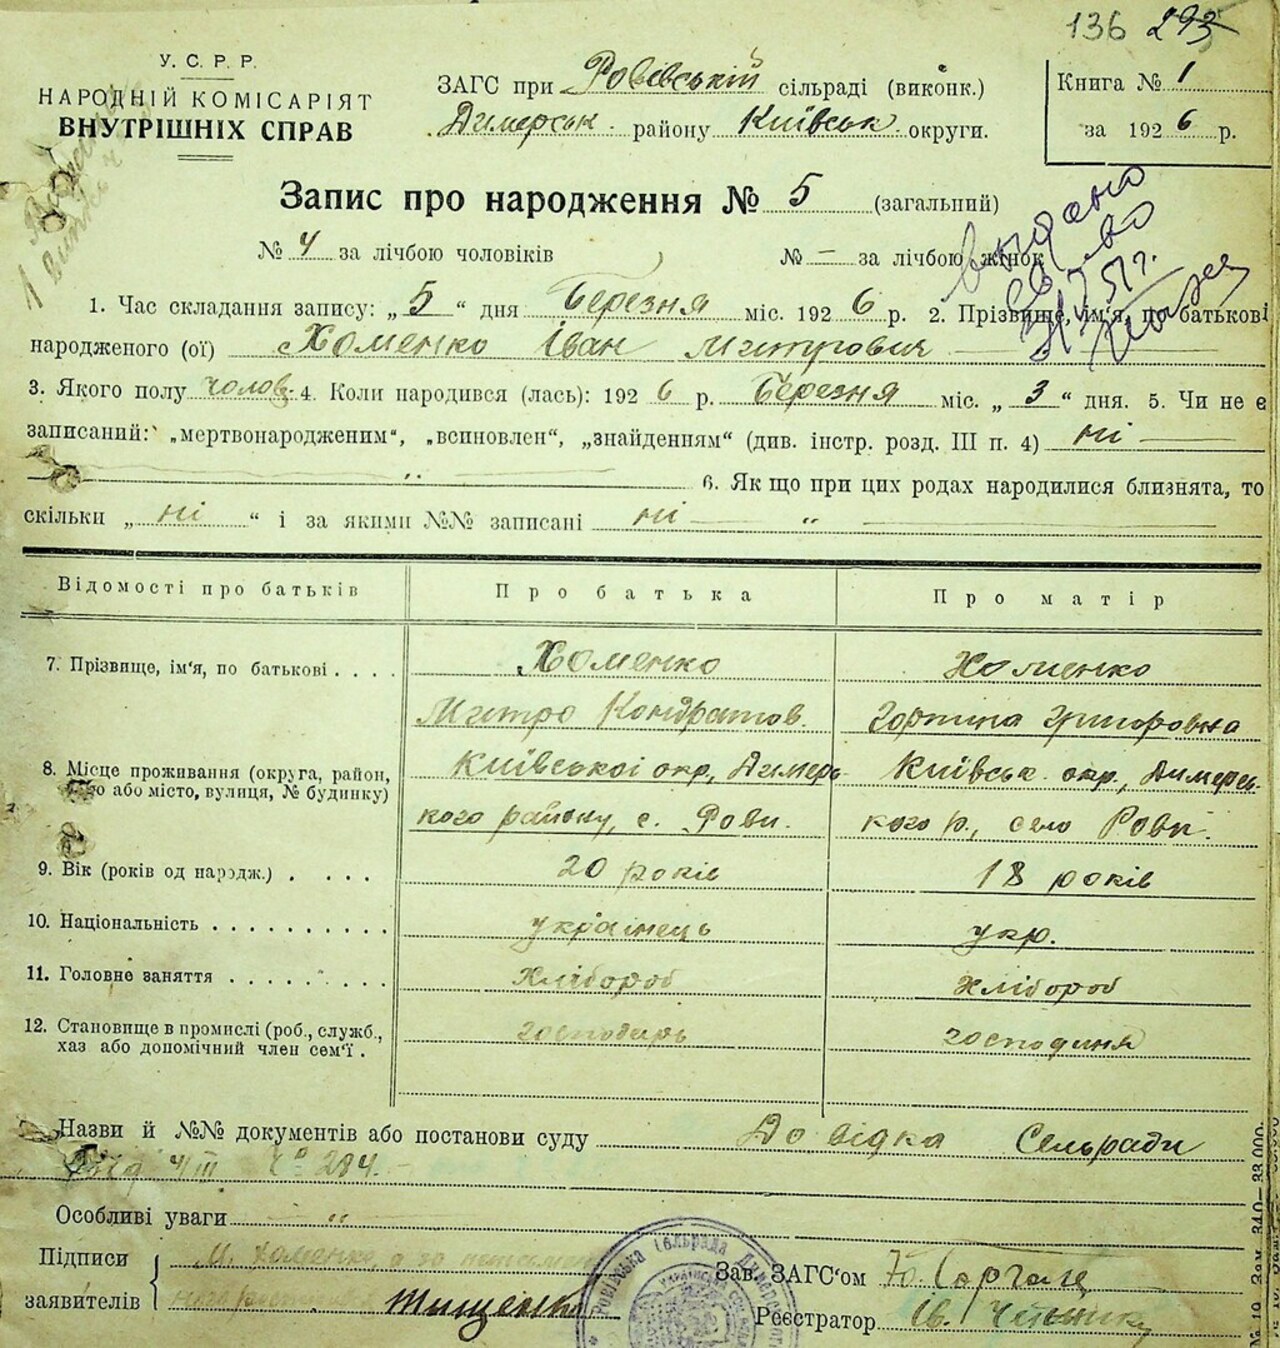 136 293
У. С. Р. Р.
НАРОДНІЙ КОМІСАРІЯТ
ВНУТРІШНІХ СПРАВ
ЗАГС при Ровівській сільраді (виконк.)
Димерськ. району Київськ. округи.
Книга № 1
за 1926 р.
Запис про народження № 5 (загальний)
№ 4 за лічбою чоловіків № — за лічбою жінок
видано
1. Час складання запису: „5“ дня Березня міс. 1926 р. 2. Прізвище, ім'я, по батькові
народженого (ої) Хоменко Іван Митрович
3. Якого полу чолов. 4. Коли народився (лась): 1926 р. Березня міс. „3“ дня. 5. Чи не є
записаний: „мертвонародженим“, „всиновлен“, „знайденням“ (див. інстр. розд. III п. 4) ні —
— „ — 6. Як що при цих родах народилися близнята, то
скільки „ні“ і за якими №№ записані ні — „ —
Відомості про батьків Про батька Про матір
7. Прізвище, ім'я, по батькові . . . . Хоменко Хоменко
Митро Кондратов. Горпина Григоровна
8. Місце проживання (округа, район, Київської окр., Димерсь- Київськ. окр., Димерсь-
або місто, вулиця, № будинку) кого району, с. Рови. кого р., село Рови.
9. Вік (років од народж.) . . . . 20 років 18 років
10. Національність . . . . . . . . . . українець укр.
11. Головне заняття . . . . . . . . . Хлібороб хлібороб
12. Становище в промислі (роб., служб., господарь господиня
хаз або допомічний член сем'ї .
Назви й №№ документів або постанови суду Довідка Сельради
4/III № 284.
Особливі уваги — „ —
Підписи М. Хоменко, а за
заявителів Тищенко
Ровівська Сельрада
Зав. ЗАГС'ом
Реєстратор Ів.